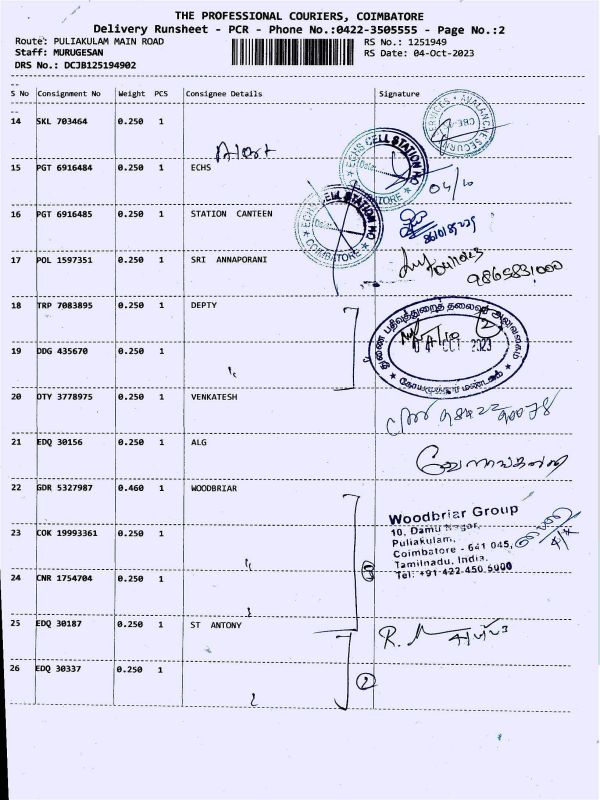 THE PROFESSIONAL COURIERS, COIMBATORE
Delivery Runsheet - PCR - Phone No.:0422-3505555 - Page No.:2
Route: PULIAKULAM MAIN ROAD
RS No.: 1251949
Staff: MURUGESAN
RS Date: 04-Oct-2023
DRS No.: DCJB125194902
S No Consignment No Weight PCS Consignee Details Signature
14 SKL 703464 0.250 1
15 PGT 6916484 0.250 1 ECHS
ECHS CELL STATION HQ
COIMBATORE
04/10
16 PGT 6916485 0.250 1 STATION CANTEEN
ECHS CELL STATION HQ
COIMBATORE
17 POL 1597351 0.250 1 SRI ANNAPORANI
9865831000
18 TRP 7083895 0.250 1 DEPTY
2
19 DDG 435670 0.250 1
OCT 2023
20 DTY 3778975 0.250 1 VENKATESH
21 EDQ 30156 0.250 1 ALG
22 GDR 5327987 0.460 1 WOODBRIAR
Woodbriar Group
10, Damu Nagar,
Puliakulam,
Coimbatore - 641 045,
Tamilnadu, India.
Tel: +91-422-450 5000
23 COK 19993361 0.250 1
24 CNR 1754704 0.250 1
3
25 EDQ 30187 0.250 1 ST ANTONY
26 EDQ 30337 0.250 1
2